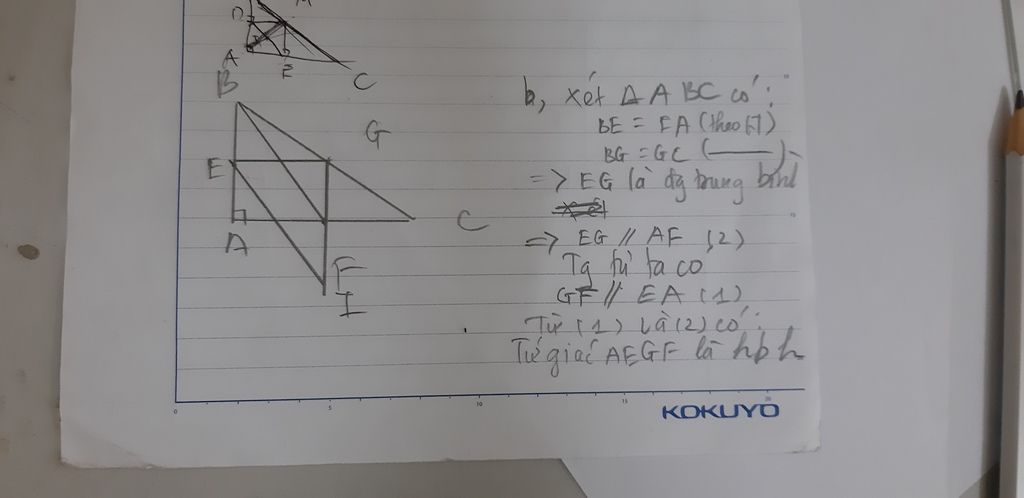 D
M
A
E
C
B
G
E
A
C
F
I
b, xét Δ ABC có:
BE = EA (theo GT)
BG = GC ( —— )
=> EG là đg trung bình
=> EG // AF (2)
Tg tự ta có
GF // EA (1)
Từ (1) và (2) có:
Tứ giác AEGF là hbh
0 5 10 15 20
KOKUYO